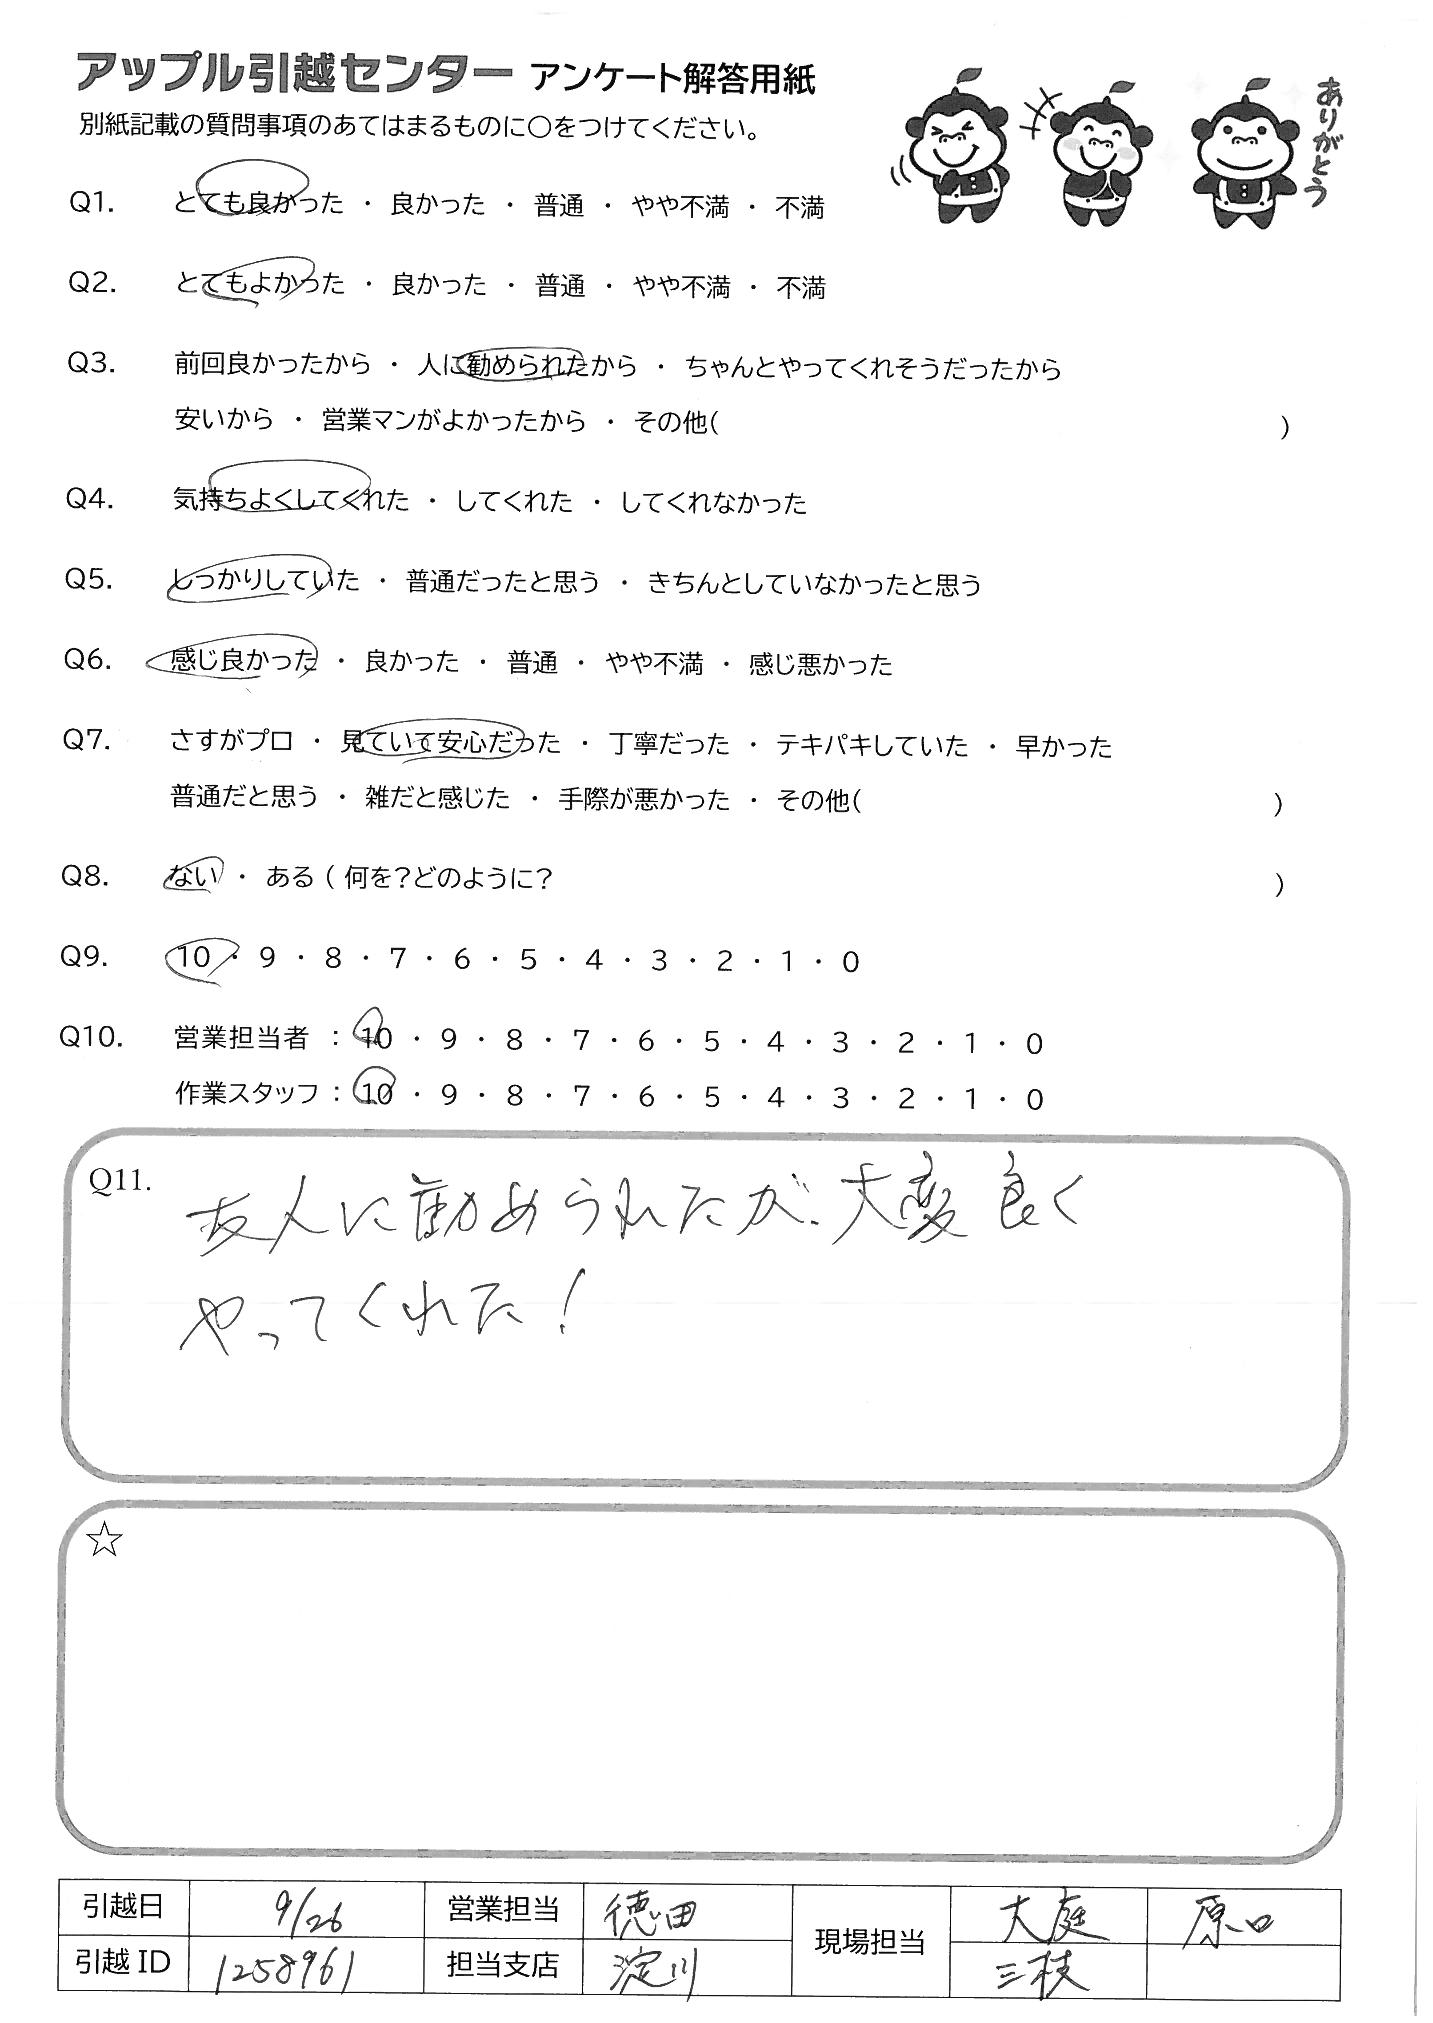 アップル引越センター アンケート解答用紙
別紙記載の質問事項のあてはまるものに○をつけてください。
ありがとう
Q1. とても良かった ・ 良かった ・ 普通 ・ やや不満 ・ 不満
Q2. とてもよかった ・ 良かった ・ 普通 ・ やや不満 ・ 不満
Q3. 前回良かったから ・ 人に勧められたから ・ ちゃんとやってくれそうだったから
安いから ・ 営業マンがよかったから ・ その他( )
Q4. 気持ちよくしてくれた ・ してくれた ・ してくれなかった
Q5. しっかりしていた ・ 普通だったと思う ・ きちんとしていなかったと思う
Q6. 感じ良かった ・ 良かった ・ 普通 ・ やや不満 ・ 感じ悪かった
Q7. さすがプロ ・ 見ていて安心だった ・ 丁寧だった ・ テキパキしていた ・ 早かった
普通だと思う ・ 雑だと感じた ・ 手際が悪かった ・ その他( )
Q8. ない ・ ある ( 何を?どのように? )
Q9. 10 ・ 9 ・ 8 ・ 7 ・ 6 ・ 5 ・ 4 ・ 3 ・ 2 ・ 1 ・ 0
Q10. 営業担当者 : 10 ・ 9 ・ 8 ・ 7 ・ 6 ・ 5 ・ 4 ・ 3 ・ 2 ・ 1 ・ 0
作業スタッフ : 10 ・ 9 ・ 8 ・ 7 ・ 6 ・ 5 ・ 4 ・ 3 ・ 2 ・ 1 ・ 0
Q11.
友人に勧められたが、大変良く
やってくれた!
☆
引越日 9/26 営業担当 徳田 現場担当 大庭 原口
引越ID 1258961 担当支店 淀川 三枝